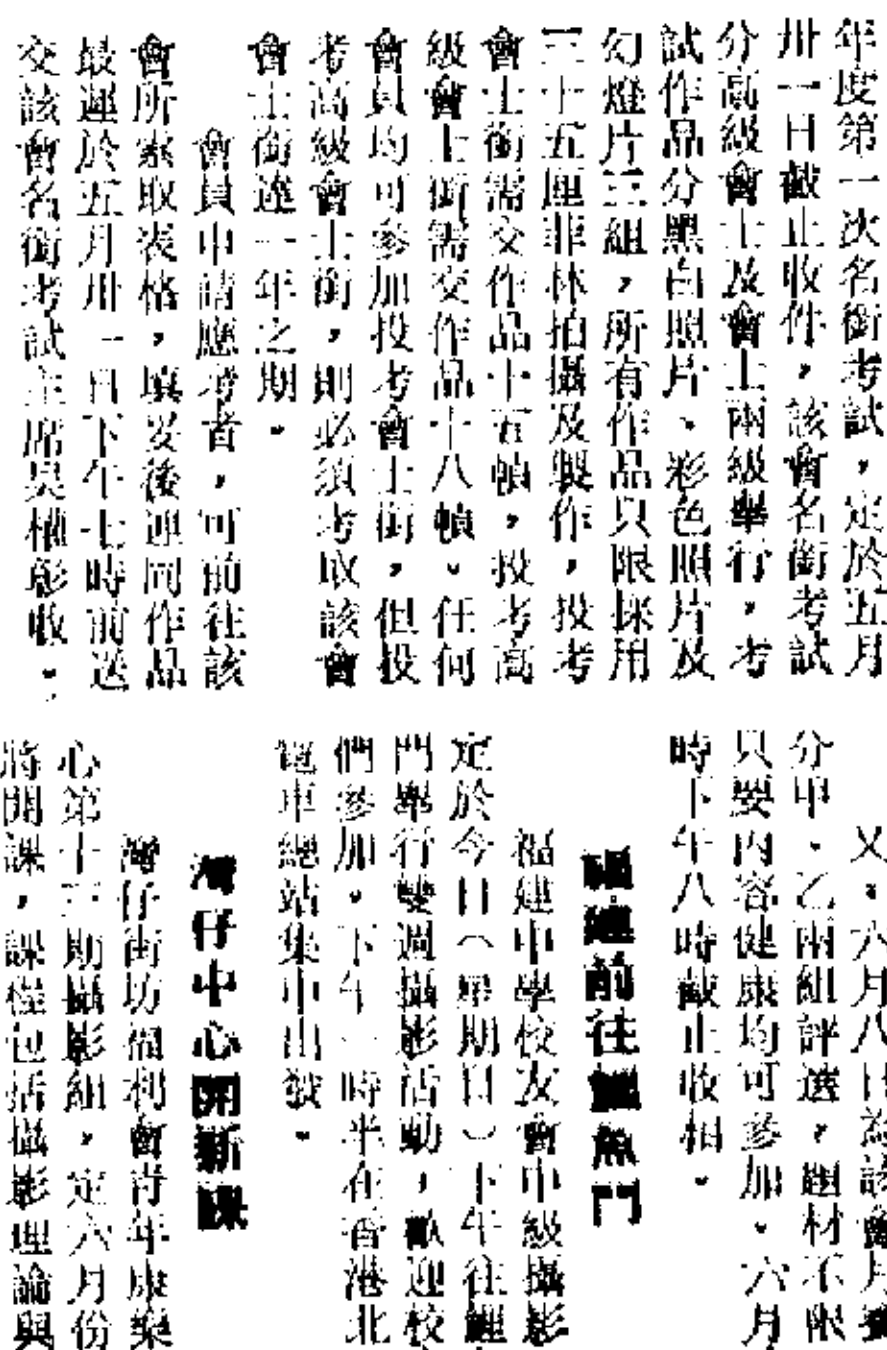 年度第一次名銜考試，定於五月
卅一日截止收件，該會名銜考試
分高級會士及會士兩級舉行，考
試作品分黑白照片、彩色照片及
幻燈片三組，所有作品只限採用
三十五厘菲林拍攝及製作，投考
會士銜需交作品十五幀，投考高
級會士銜需交作品十八幀。任何
會員均可參加投考會士銜，但投
考高級會士銜，則必須考取該會
會士銜達一年之期。
會員申請應考者，可前往該
會所索取表格，填妥後連同作品
最遲於五月卅一日下午七時前送
交該會名銜考試主席吳權彰收。
又，六月八日為該會月賽
分甲、乙兩組評選，題材不限
只要內容健康均可參加。六月
時下午八時截止收相。
福建前往鯉魚門
福建中學校友會中級攝影
定於今日（星期日）下午往鯉
門舉行雙週攝影活動，歡迎校
們參加。下午一時半在香港北
電車總站集中出發。
灣仔中心開新課
灣仔街坊福利會青年康樂
心第十三期攝影組，定六月份
將開課，課程包括攝影理論與